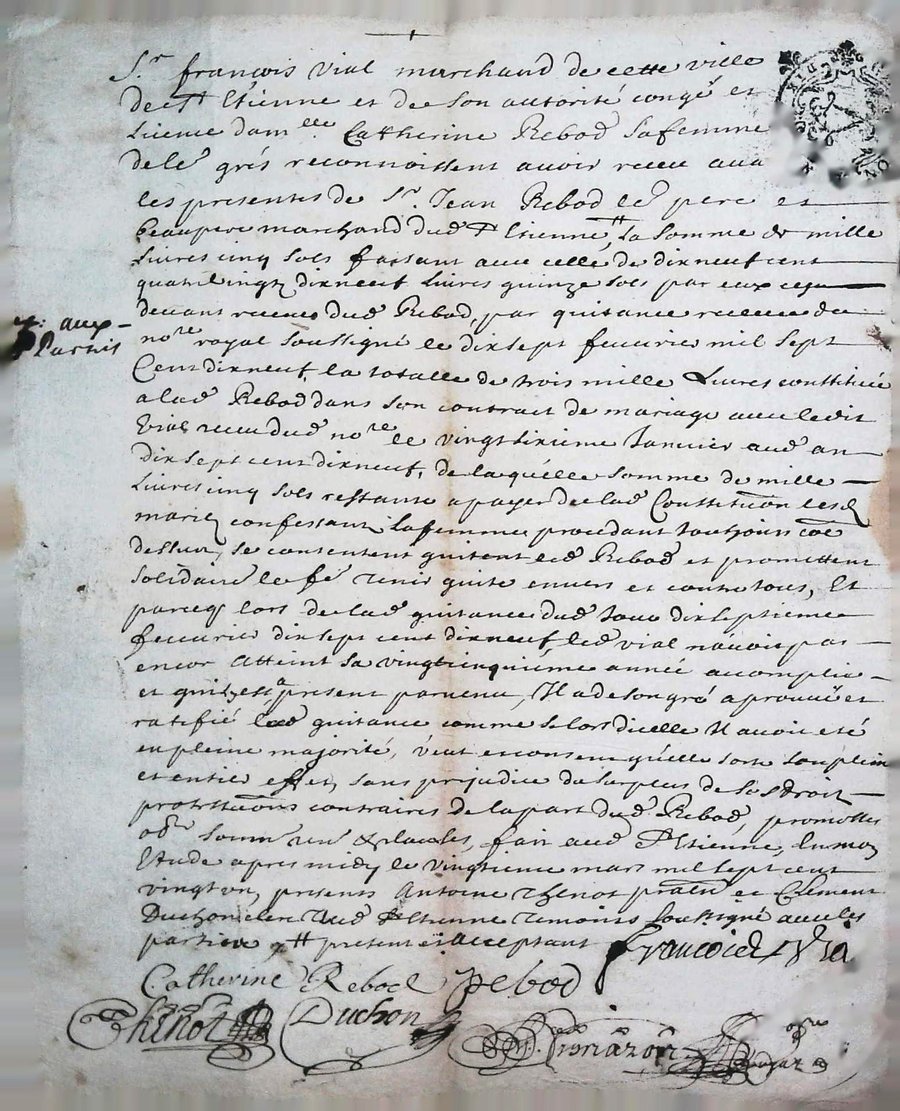 Sr. françois vial marchand de cette ville
de St Etienne et de son autorité congé et
licence damlle. Catherine Rebod sa femme
de leᵈ grés reconnoissent avoir receu avant
les presentes de Sr. Jean Rebod leᵈ pere et
beaupere marchand dudᵈ St Etienne, la somme de mille
livres cinq sols faisant avec celle de dix neuf cent
quatre vingtz dix neuf livres quinze sols par eux cy
devant receue dudᵈ Rebod, par quitance receue du
nore royal soussigné le dix sept feuvrier mil sept
Cent dix neuf, la totalle de trois mille Livres constituée
a ladᵈ Rebod dans son contract de mariage avec ledit
Vial receu dudᵈ nore le vingt sixieme Janvier audᵈ an
dix sept cent dix neuf, de laquelle somme de mille
livres cinq sols restante a payer de ladᵈ Constitution lesd
mariez confessant la femme procedant toutjours coe
dessus, se contentent quitent ledᵈ Rebod et promettent
solidaire le fe tenir quite envers et contre tous, Et
parceq lors de ladᵈ quitance dudᵈ jour dix septieme
feuvrier dix sept cent dix neuf, ledᵈ vial n'avoit pas
encor atteint sa vingt cinquieme année accomplie
et quil y est a present parvenu, Il a de son gré aprouvé et
ratifié ladᵈ quitance comme si lors dicelle Il avoit eté
en pleine majorité, veut et consent qu'elle sorte son plein
et entier effet, sans prejudice du surplus de ses droit
protestations contraires de la part dudᵈ Rebod, promettes
obon soum ren & clauses, fait audᵈ St Etienne, en mon
Etude apres midy le vingtieme mars mil sept cent
vingt un, presents Antoine Thenot praten et Clement
Duchon clerc dudᵈ St Etienne temoins soussigné avec les
parties presentes acceptant francois Vial
Catherine Rebod Rebod
Thenot Duchon